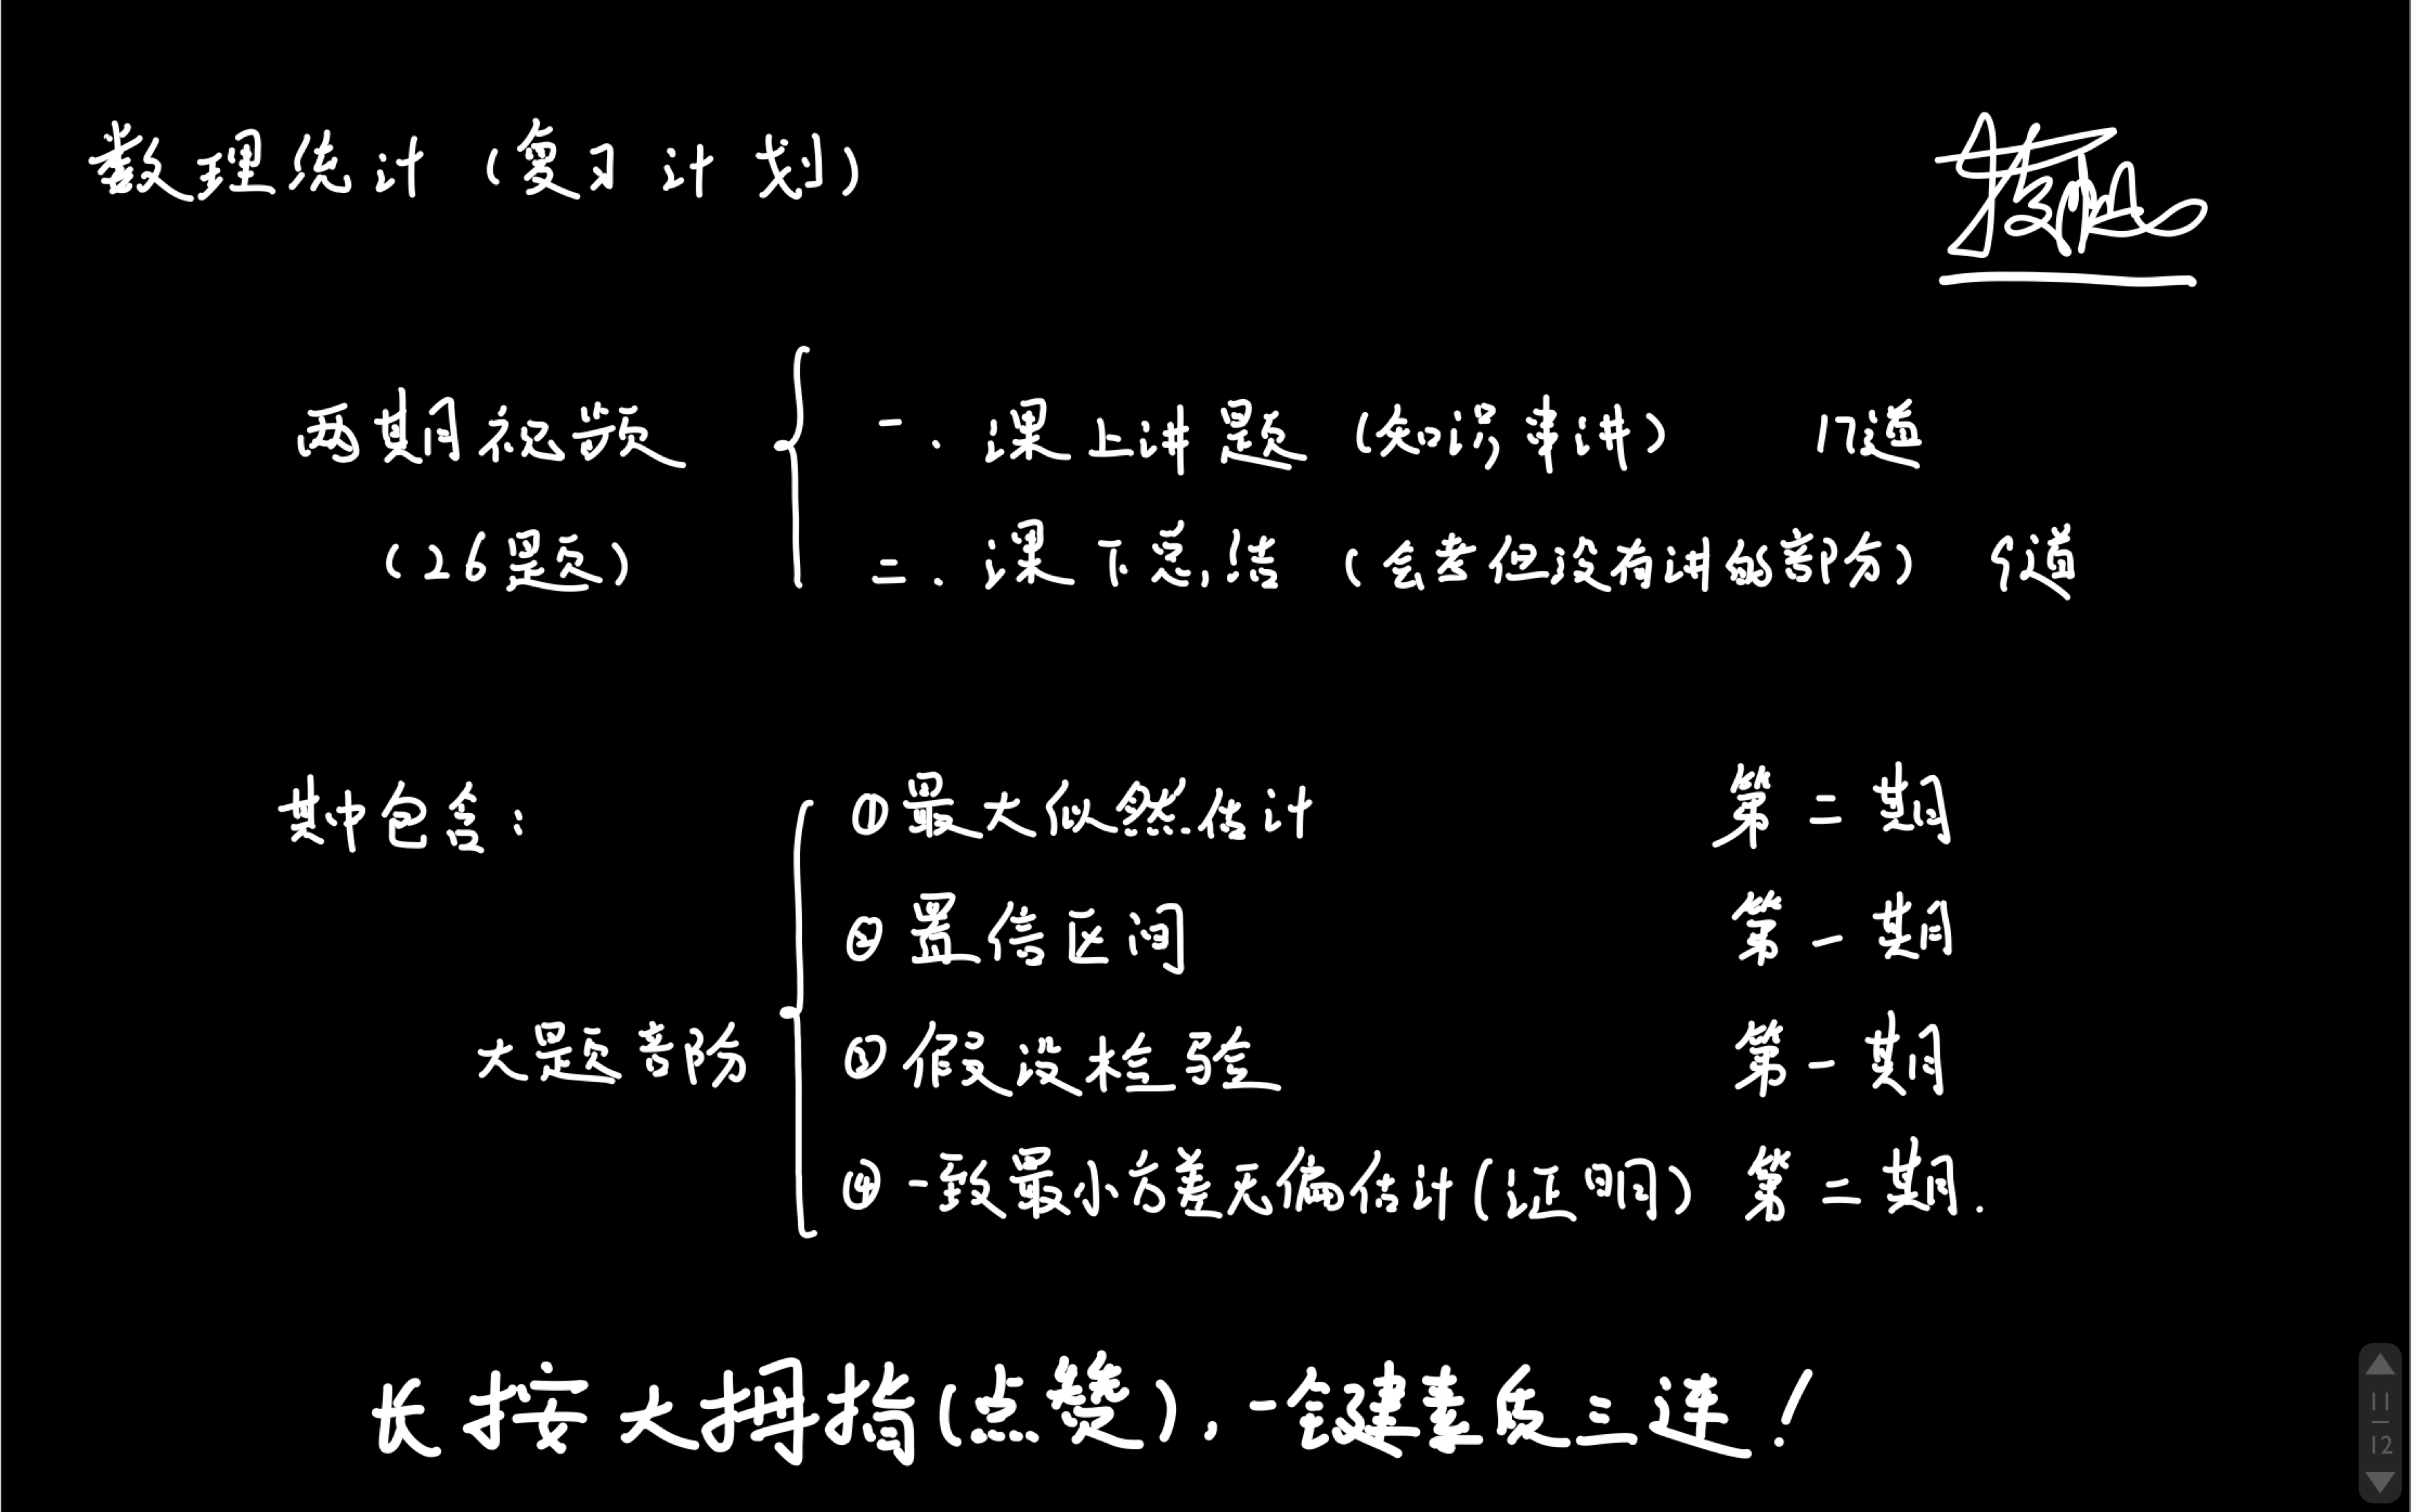 数理统计（复习计划）
两期视频
（26题）
一、课上讲题（知识串讲） 17道
二、课下总结（会考但没有讲的部分） 9道
其中包含：
大题部分
①最大似然估计 第二期
②置信区间 第一期
③假设检验 第一期
④一致最小方差无偏估计（证明） 第二期.
长按大拇指（点赞），一键素质三连！
11
12